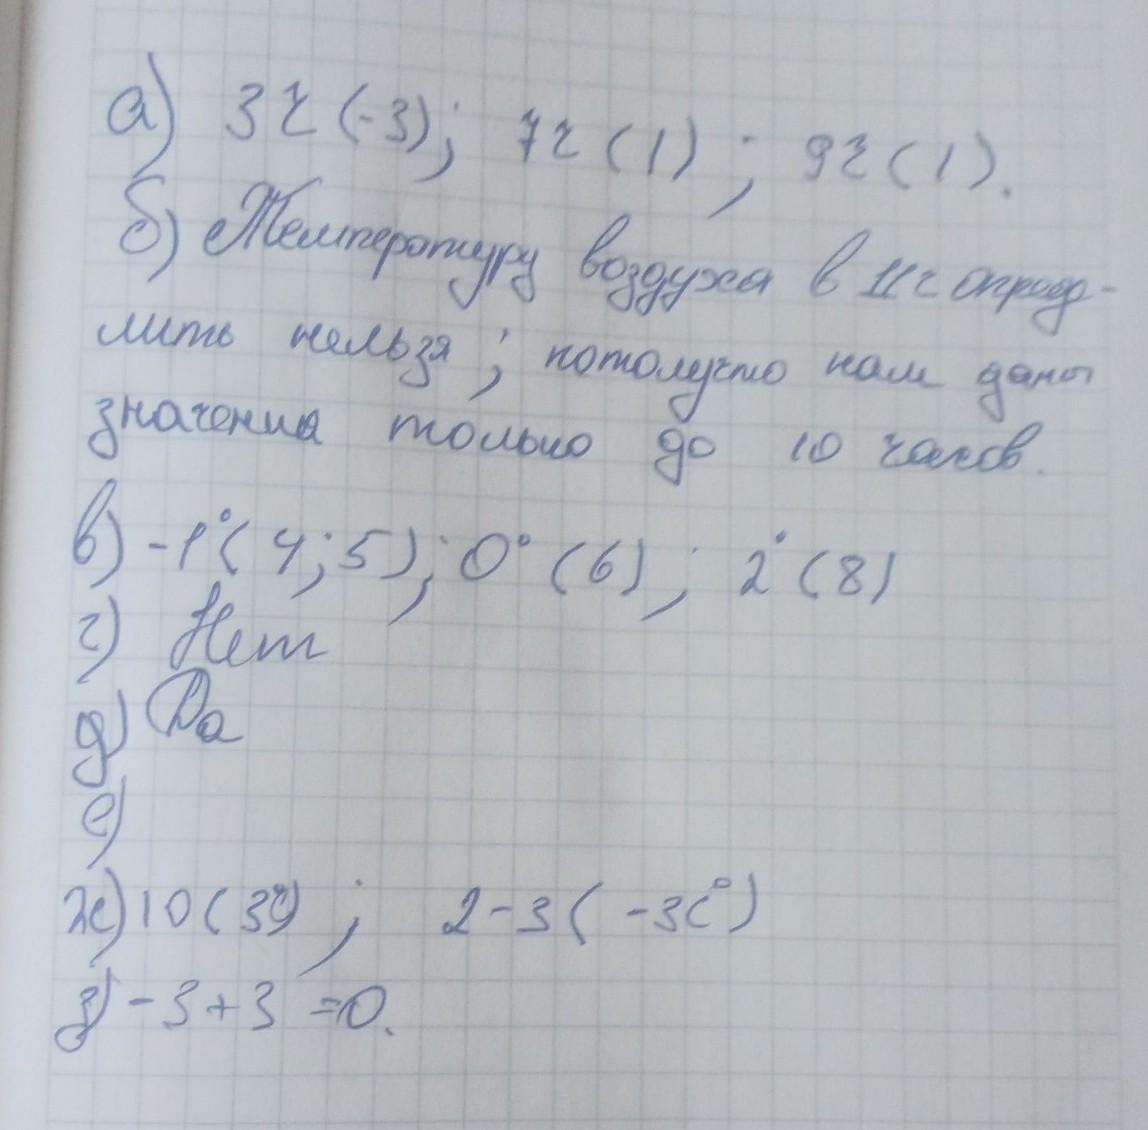 а) 3ч (-3); 7ч (1); 9ч (1).
б) Температуру воздуха в 11ч опреде-
лить нельзя; потомучто нам даны
значения только до 10 часов.
в) -1° (4;5); 0° (6); 2° (8)
г) Нет
д) Да
е)
ж) 10 (3С°); 2-3 (-3С°)
з) -3+3 =0.